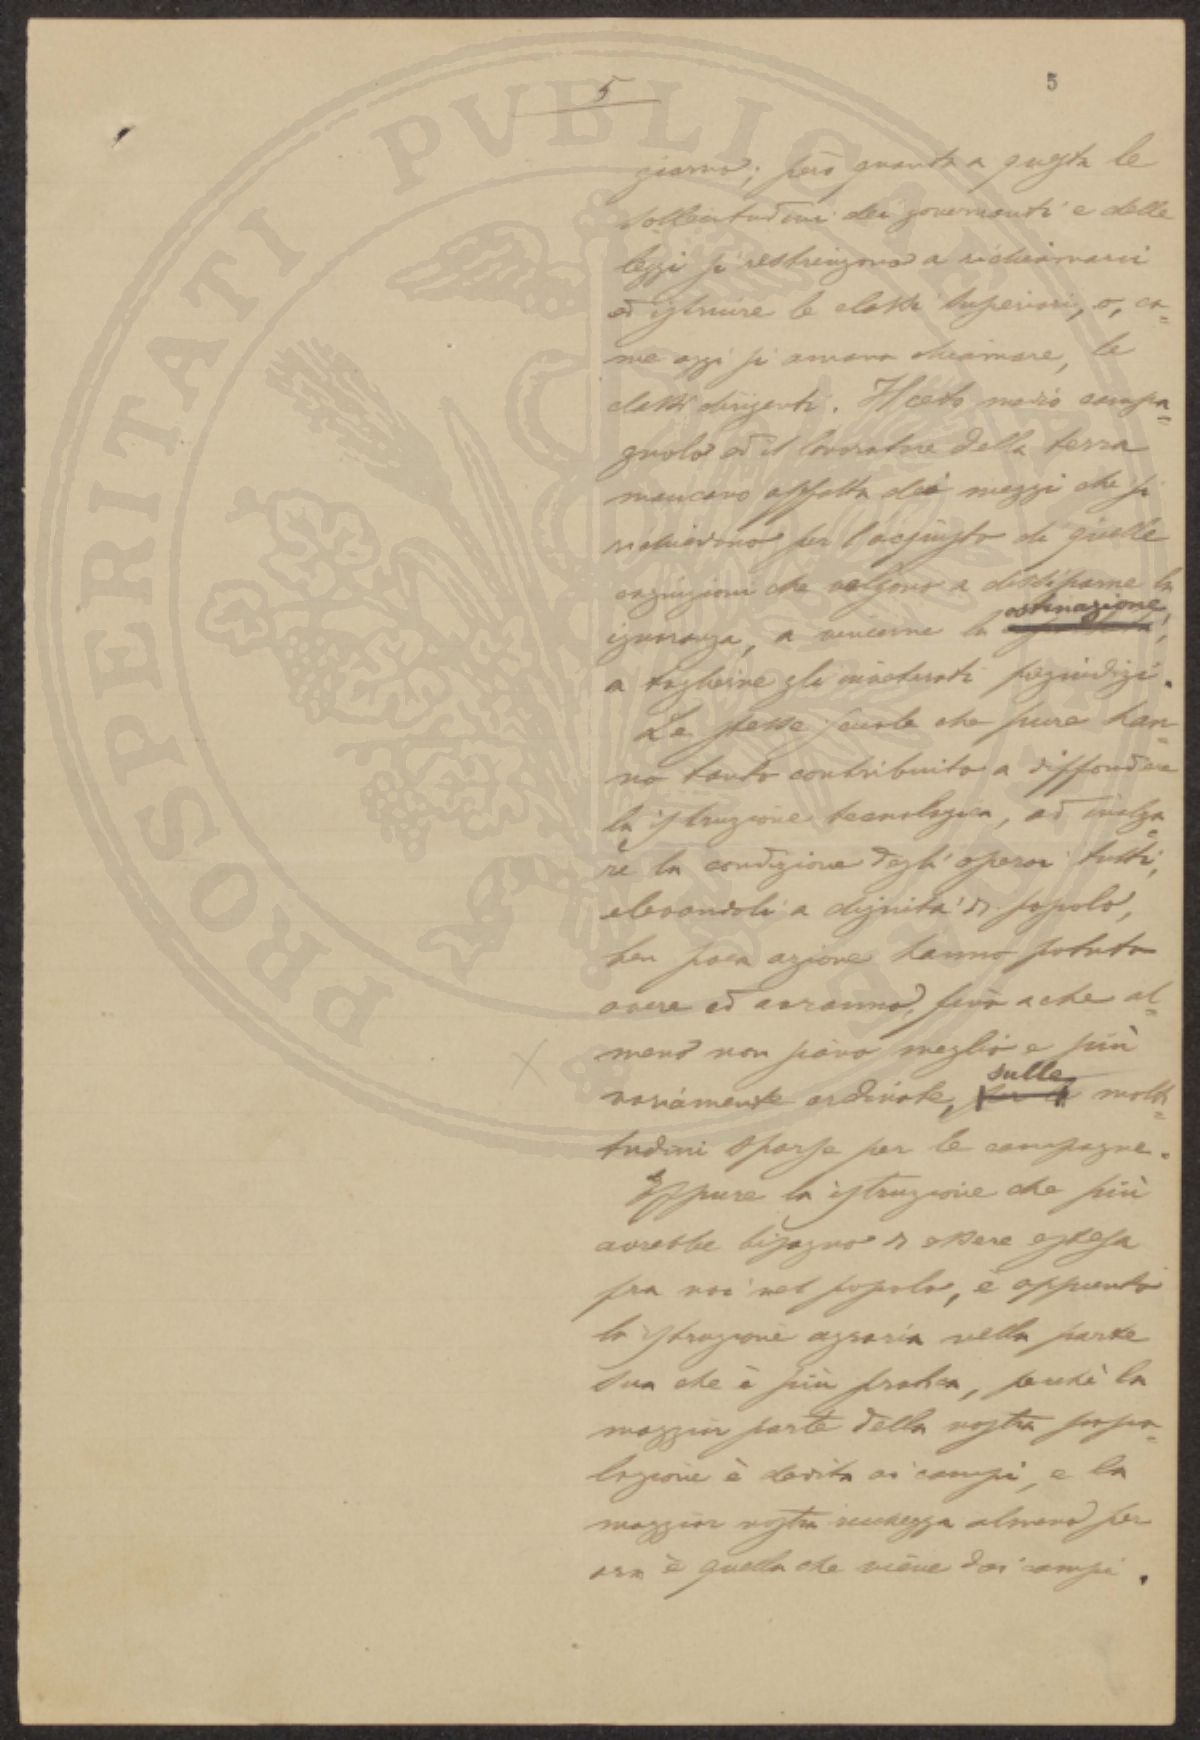 5
5
giorno; però quanto a questa le
sollecitudini dei governanti e delle
leggi si restringono a richiamarvi
ed istruire le classi superiori, o, co=
me oggi si amano chiamare, le
classi dirigenti. Il ceto medio campa=
gnolo ed il lavoratore della terra
mancano affatto dei mezzi che si
richiedono per l'acquisto di quelle
cognizioni che valgono a dissiparne la
ignoranza, a vincerne la ostinazione,
a toglierne gli inveterati pregiudizi.
Le stesse scuole che pure han=
no tanto contribuito a diffondere
la istruzione tecnologica, ad inalza
re la condizione degli operai tutti,
elevandoli a dignità di popolo,
ben poca azione hanno potuto
avere ed avranno, fino a che al=
meno non siano meglio e più
variamente ordinate, sulle molti=
tudini sparse per le campagne.
Eppure la istruzione che più
avrebbe bisogno di essere estesa
fra noi nel popolo, è appunto
la istruzione agraria nella parte
sua che è più pratica, perchè la
maggior parte della nostra popo=
lazione è dedita ai campi, e la
maggior nostra ricchezza almeno per
ora è quella che viene dai campi.
PROSPERITATI PVBLICAE